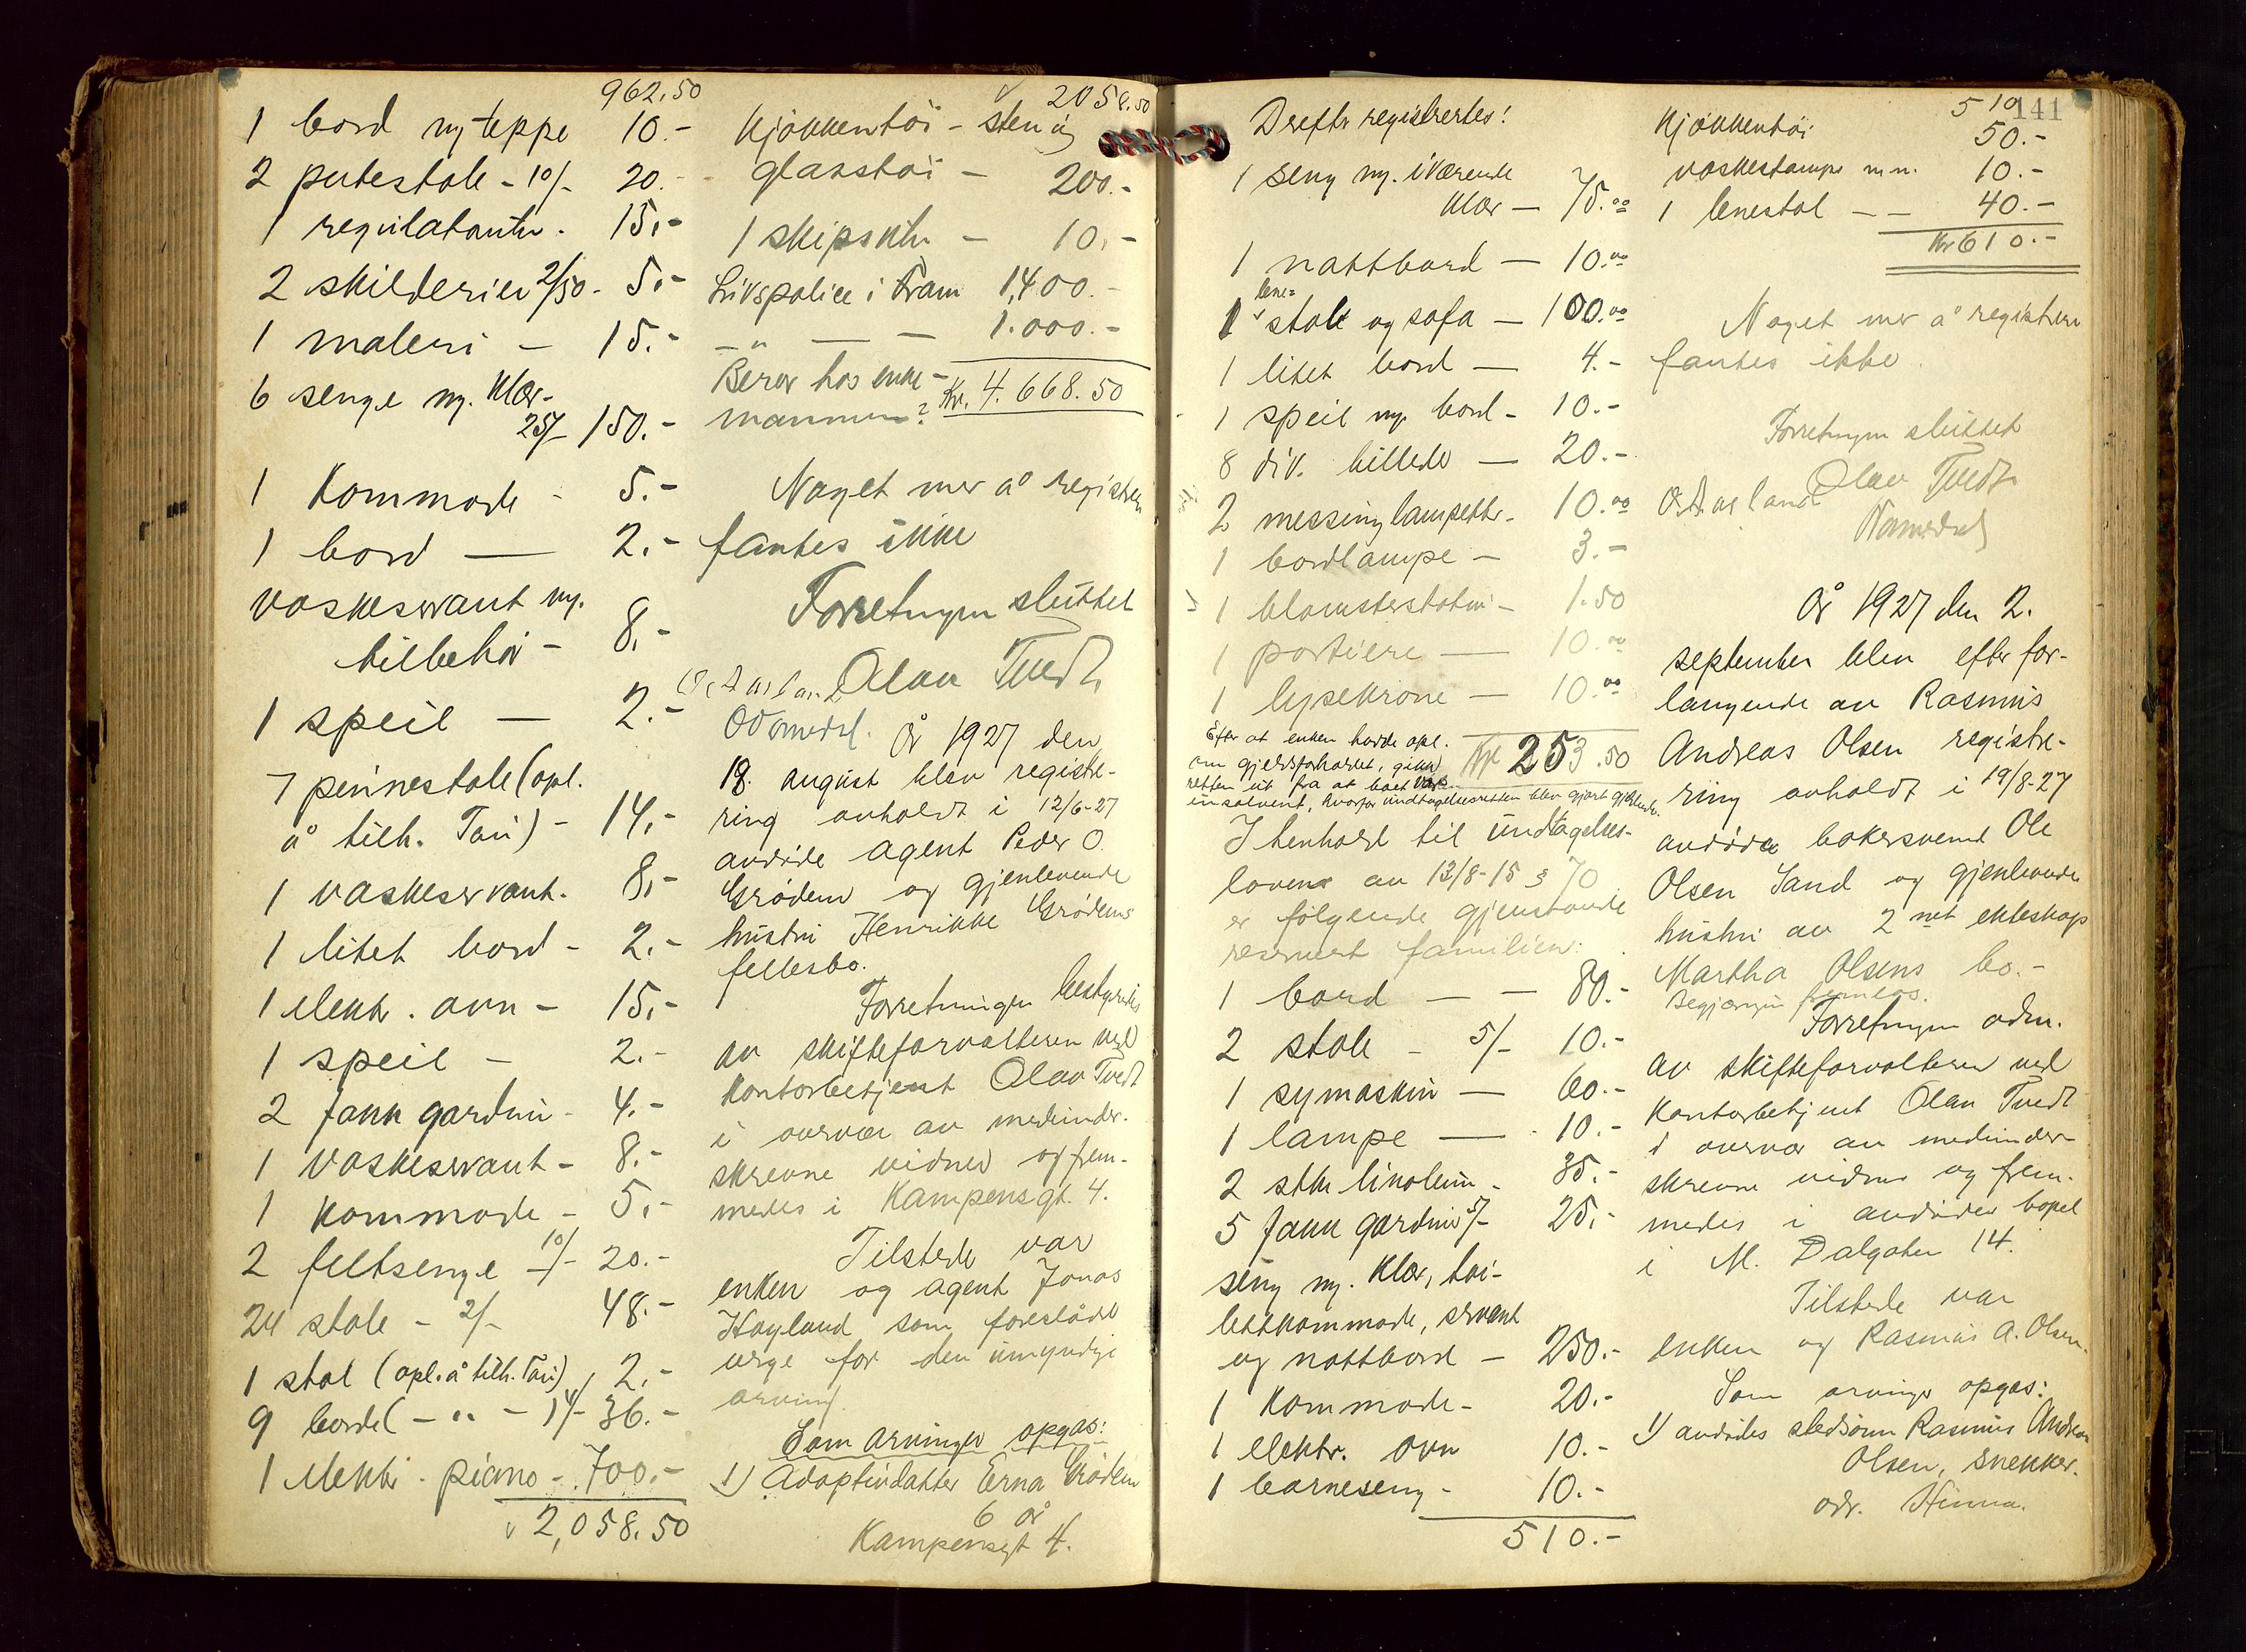 962.50
1 bord mg teppe 10.-
2 putestole - 10/- 20.-
1 regulatorur. 15.-
2 skilderier 2/50 - 5.-
1 maleri - 15.-
6 senge mg. klær-
25/- 150.-
1 Kommode - 5.-
1 bord — 2.-
vaskeservant mg.
tilbehør - 8.-
1 speil — 2.-
7 pinnestole (opl.
å tilh. Tari) - 14.-
1 vaskeservant. 8.-
1 litet bord - 2.-
1 elektr. ovn - 15.-
1 speil - 2.-
2 fann gardiner - 4.-
1 vaskeservant - 8.-
1 kommode - 5.-
2 feltsenge 10/- 20.-
24 stole - 2/- 48.-
1 stol (opl. å tilh. Tari) 2.-
9 borde ( - " - ) 4/- 36.-
1 elektr. piano - 700.-
2,058.50
2058.50
Kjøkkentøi - sten og
glasstøi - 200.-
1 skipsur - 10.-
Livspolice i Fram 1,400.-
- " — — 1.000.-
Beror hos enke-
mannen? Kr. 4.668.50
Noget mer å registrere
fantes ikke
Forretningen sluttet
Olav Tvedt
År 1927 den
18. august blev registre-
ring avholdt i 12/6-27
avdøde agent Peder O.
Grødem og gjenlevende
hustru Henrikke Grødems
fellesbo.
Forretningen bestyredes
av skifteforvalteren ved
kontorbetjent Olav Tvedt
i overvær av medunder-
skrevne vidner og frem-
medes i Kampensgt. 4.
Tilstede var
enken og agent Jonas
Høyland som foreslådt
verge for den umyndige
arving.
Som arvinger opgas:
1) Adoptivdatter Erna Grødem
6 år
Kampensgt 4.
141
Derefter registrertes!
1 seng mg. iværende
klær — 75.00
1 nattbord — 10.00
1 lene- stol og sofa — 100.00
1 litet bord — 4.-
1 speil mg. bord - 10.-
8 div. billeder — 20.-
2 messinglampetter - 10.00
1 bordlampe - 3.-
1 blomsterstativ - 1.50
1 portiere — 10.00
1 lysekrone — 10.00
Kr 253.50
Efter at enken hadde opl.
om gjeldsforholdet, gikk
retten ut fra at boet var
insolvent, hvorfor undtagelsesretten blev gjort gjeldende.
I henhold til undtagelses-
loven av 13/8-15 § 70
er følgende gjenstande
reservert familien:
1 bord — — 80.-
2 stole - 5/- 10.-
1 symaskin — 60.-
1 lampe — 10.-
2 stkr linoleum - 35.-
5 fann gardiner 5/- 25.-
seng mg. klær, toi-
lettkommode, servant
og nattbord — 250.-
1 Kommode - 20.-
1 elektr. ovn 10.-
1 barneseng - 10.-
510.-
510
Kjøkkentøi 50.-
vaskestamper m.m. 10.-
1 lenestol — — 40.-
Kr 610.-
Noget mer å registrere
fantes ikke.
Forretningen sluttet
Olav Tvedt
År 1927 den 2.
september blev efter for-
langende av Rasmus
Andreas Olsen registre-
ring avholdt i 19/8-27
avdøde bakersvend Ole
Olsen Sand og gjenlevende
hustru av 2net ekteskap
Martha Olsens bo.-
Begjæringen fremlas.
Forretningen adm.
av skifteforvalteren ved
kontorbetjent Olav Tvedt
i overvær av medunder-
skrevne vidner og frem-
medes i avdødes bopel
i M. Dalgaten 14.
Tilstede var
enken og Rasmus A. Olsen.
Som arvinger opgas:
1) avdødes stedsønn Rasmus Andreas
Olsen, snekker.
adr. Hinna.